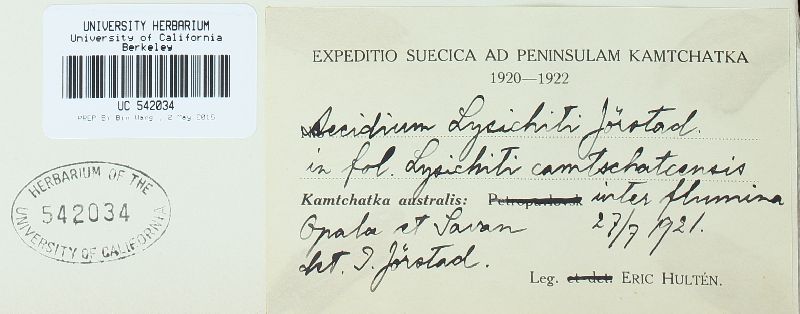 UNIVERSITY HERBARIUM
University of California
Berkeley
UC 542034
PREP By Bin Wang , 2 May 2016
HERBARIUM OF THE
542034
UNIVERSITY OF CALIFORNIA
EXPEDITIO SUECICA AD PENINSULAM KAMTCHATKA
1920—1922
Aecidium Lysichiti Jörstad.
in fol. Lysichiti camtschatcensis
Kamtchatka australis: Petropavlovsk inter flumina
Opala et Savan 27/7 1921.
det. I. Jörstad.
Leg. et det. ERIC HULTÉN.